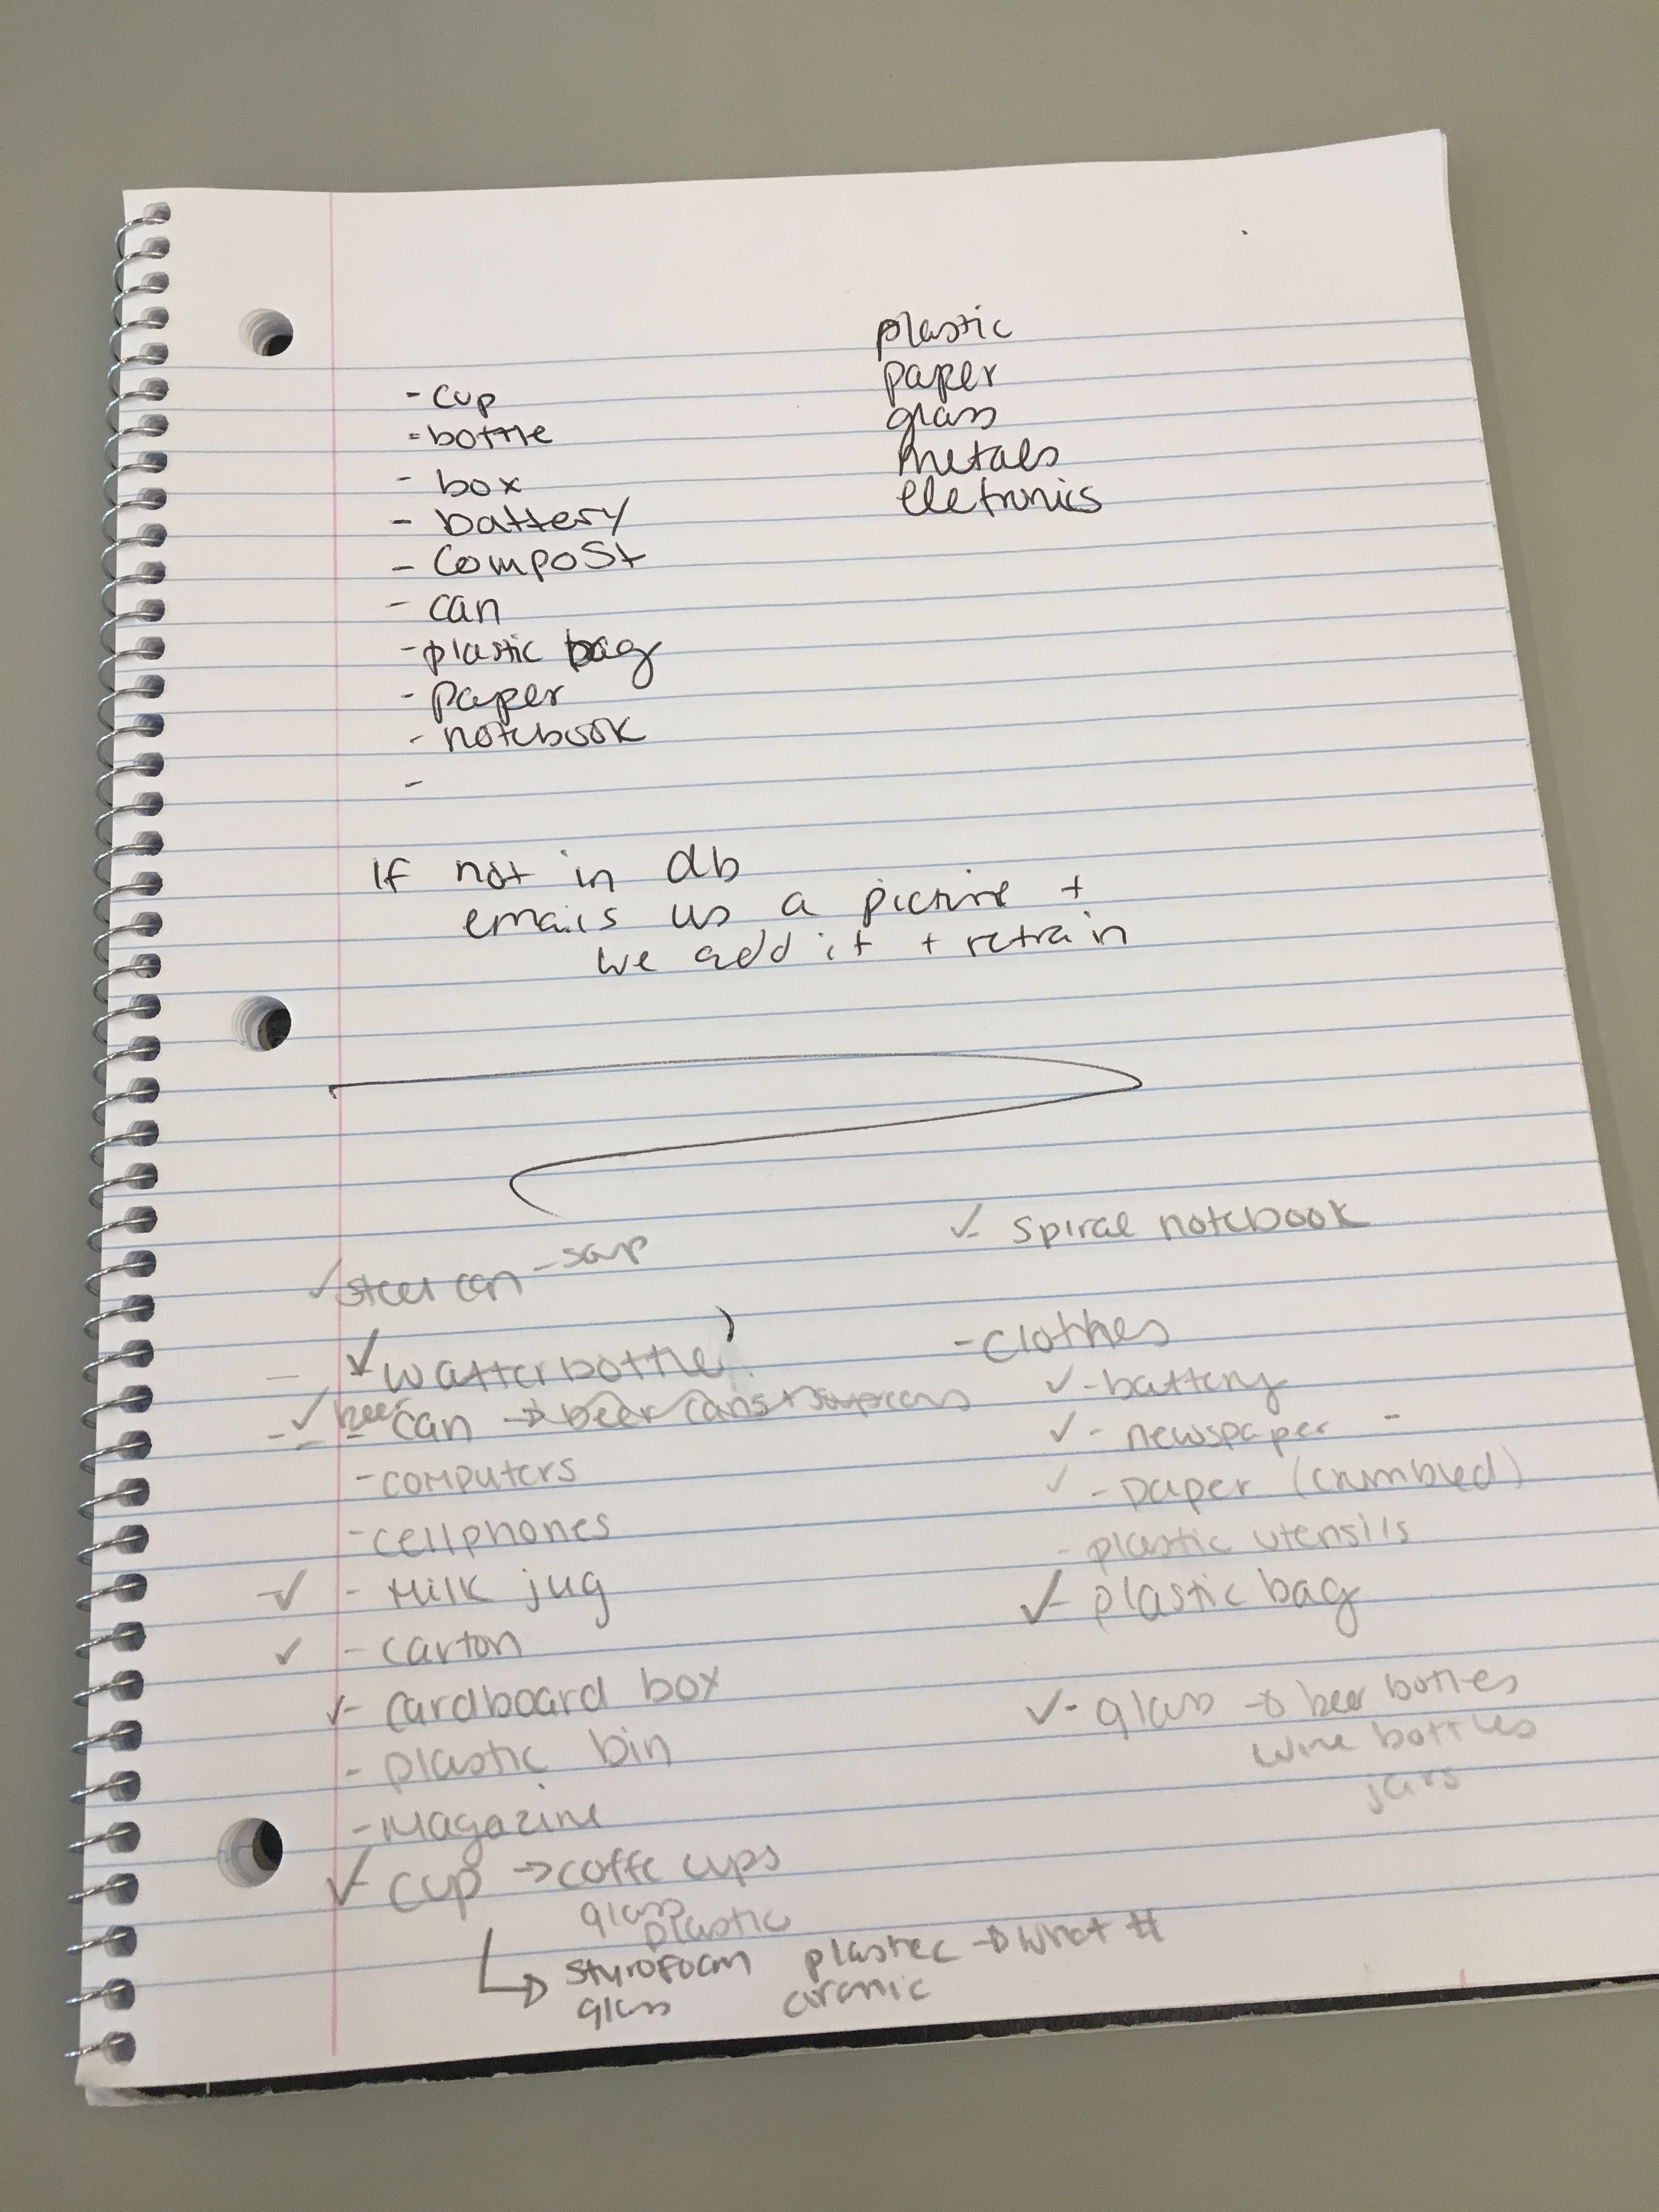 - cup
- bottle
- box
- battery
- compost
- can
- plastic bag
- paper
- notebook
-
plastic
paper
glass
metals
eletronics
If not in db
emails us a picture +
we add it + retrain
✓ steel can - soup
✓ watterbottle
✓ beer can → beer cans +
- computers
- cellphones
✓ - Milk jug
✓ - carton
✓ - cardboard box
- plastic bin
- Magazine
✓ cup → coffe cups
glass
plastic
↳ styrofoam plastec → what #
glass
✓ - spiral notebook
- clothes
✓ - battery
✓ - newspaper -
✓ - paper (crumbled)
- plastic utensils
✓ - plastic bag
✓ - glass → beer bottles
wine bottles
jars